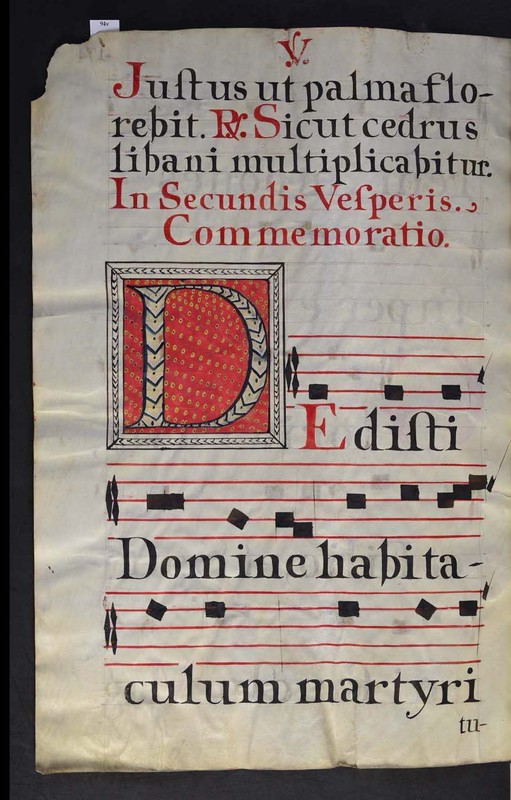 94v
℣.
Juſtus ut palma flo-
rebit. ℟. Sicut cedrus
libani multiplicabitur.
In Secundis Veſperis.
Commemoratio.
DEdiſti
Domine habita-
culum martyri
tu-